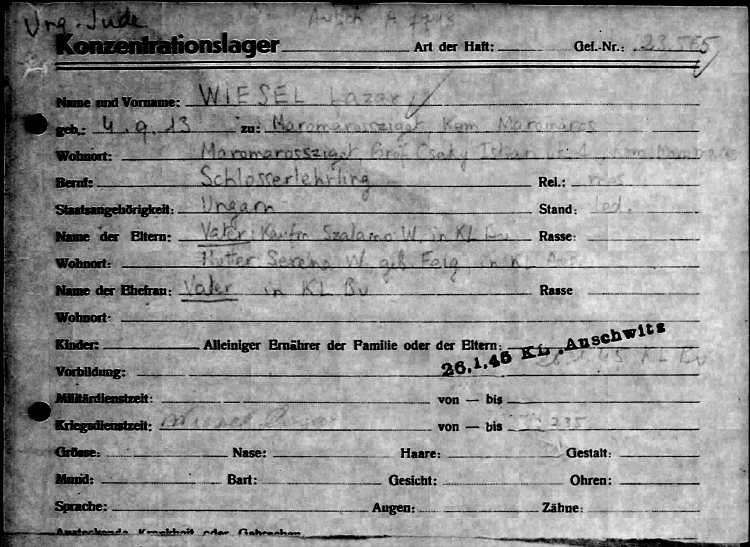 Ung. Jude Ausch A 7713
Konzentrationslager Art der Haft: Gef.-Nr.:
Name und Vorname: WIESEL Lazar
geb.: 4.9.13 zu: Maromarossziget, Kom Maromaros
Wohnort: Maromarossziget, Csaky
Beruf: Schlosserlehrling Rel.: mos
Staatsangehörigkeit: Ungarn Stand: led.
Name der Eltern: Vater: Kaufm. Szalamo W. in KL Bu Rasse:
Wohnort: Mutter Serena W. geb. Feig in KL Aus.
Name der Ehefrau: Vater in KL Bu Rasse
Wohnort:
Kinder: Alleiniger Ernährer der Familie oder der Eltern:
26.1.45 KL. Auschwitz
Vorbildung: KL Bu
Militärdienstzeit: von — bis
Kriegsdienstzeit: von — bis
Grösse: Nase: Haare: Gestalt:
Mund: Bart: Gesicht: Ohren:
Sprache: Augen: Zähne:
Ansteckende Krankheit oder Gebrechen